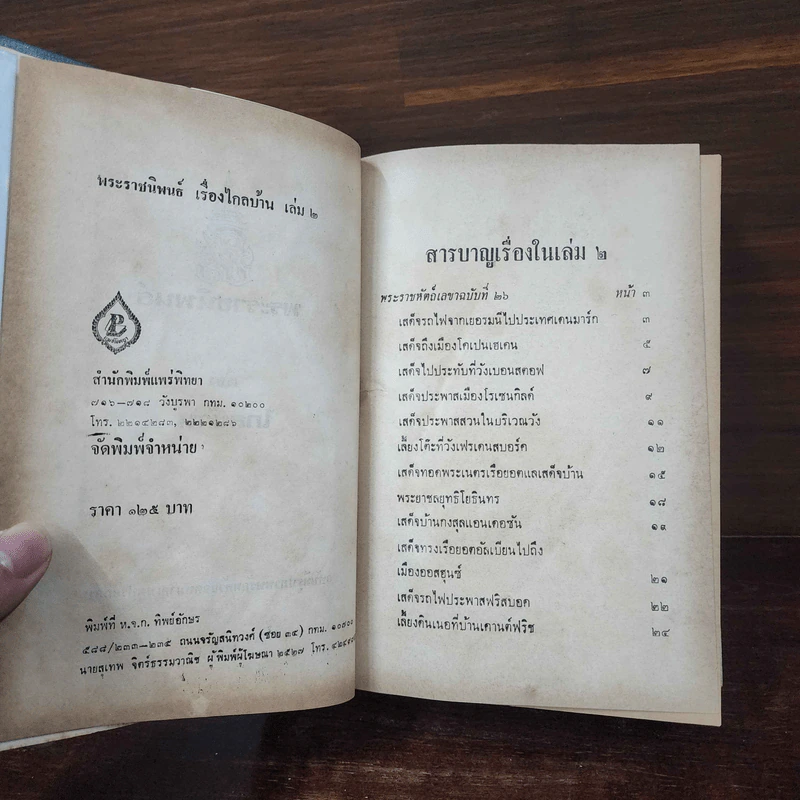 พระราชนิพนธ์ เรื่องไกลบ้าน เล่ม ๒
สำนักพิมพ์แพร่พิทยา
๗๑๖—๗๑๘ วังบูรพา กทม. ๑๐๒๐๐
โทร. ๒๒๑๔๒๘๓, ๒๒๒๑๒๘๖
จัดพิมพ์จำหน่าย
ราคา ๑๒๕ บาท
พิมพ์ที่ ห.จ.ก. ทิพย์อักษร
๕๘๘/๒๓๓—๒๓๕ ถนนจรัญสนิทวงศ์ (ซอย ๓๔) กทม. ๑๐๗๐๐
นายสุเทพ จิตร์ธรรมวาณิช ผู้พิมพ์ผู้โฆษณา ๒๕๒๗ โทร.
สารบาญเรื่องในเล่ม ๒
พระราชหัตถ์เลขาฉบับที่ ๒๖ หน้า ๓
เสด็จรถไฟจากเยอรมนีไปประเทศเดนมาร์ก ๓
เสด็จถึงเมืองโคเปนเฮเดน ๕
เสด็จไปประทับที่วังเบอนสตอฟ ๗
เสด็จประพาสเมืองโรเซนกิลด์ ๙
เสด็จประพาสสวนในบริเวณวัง ๑๑
เลี้ยงโต๊ะที่วังเฟรเดนสบอร์ค ๑๒
เสด็จทอดพระเนตรเรือยอตแลเสด็จบ้าน ๑๕
พระยาชลยุทธิโยธินทร ๑๘
เสด็จบ้านกงสุลแอนเดอซัน ๑๙
เสด็จทรงเรือยอตอัลเบียนไปถึง
เมืองออสฮูนซ์ ๒๑
เสด็จรถไฟประพาสฟริสบอค ๒๒
เลี้ยงดินเนอที่บ้านเคานต์ฟริช ๒๔